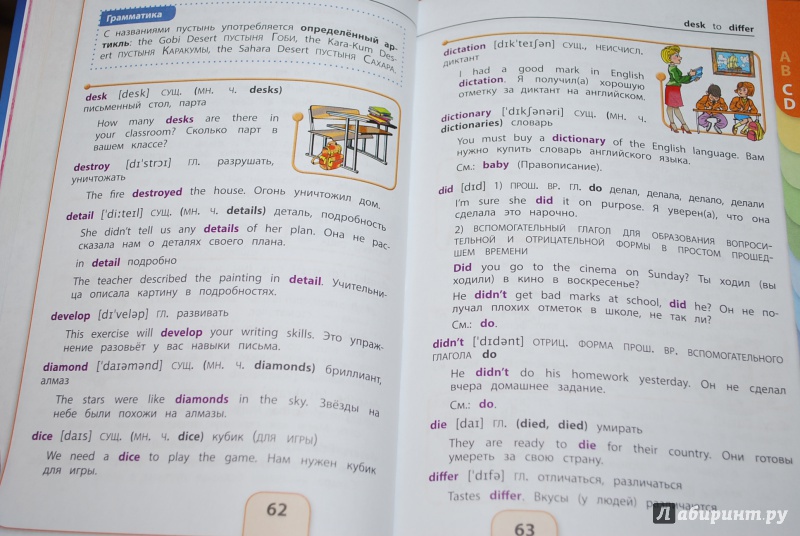 Грамматика
С названиями пустынь употребляется определённый ар-
тикль: the Gobi Desert ПУСТЫНЯ ГОБИ, the Kara-Kum Des-
ert ПУСТЫНЯ КАРАКУМЫ, the Sahara Desert ПУСТЫНЯ САХАРА.
desk [desk] СУЩ. (МН. Ч. desks)
письменный стол, парта
How many desks are there in
your classroom? Сколько парт в
вашем классе?
destroy [dɪ'strɔɪ] ГЛ. разрушать,
уничтожать
The fire destroyed the house. Огонь уничтожил дом.
detail ['di:teɪl] СУЩ. (МН. Ч. details) деталь, подробность
She didn't tell us any details of her plan. Она не рас-
сказала нам о деталях своего плана.
in detail подробно
The teacher described the painting in detail. Учительни-
ца описала картину в подробностях.
develop [dɪ'veləp] ГЛ. развивать
This exercise will develop your writing skills. Это упраж-
нение разовьёт у вас навыки письма.
diamond ['daɪəmənd] СУЩ. (МН. Ч. diamonds) бриллиант,
алмаз
The stars were like diamonds in the sky. Звёзды на
небе были похожи на алмазы.
dice [daɪs] СУЩ. (МН. Ч. dice) кубик (ДЛЯ ИГРЫ)
We need a dice to play the game. Нам нужен кубик
для игры.
62
desk to differ
dictation [dɪk'teɪʃən] СУЩ., НЕИСЧИСЛ.
диктант
I had a good mark in English
dictation. Я получил(а) хорошую
отметку за диктант на английском.
dictionary ['dɪkʃənəri] СУЩ. (МН. Ч.
dictionaries) словарь
You must buy a dictionary of the English language. Вам
нужно купить словарь английского языка.
См.: baby (Правописание).
did [dɪd] 1) ПРОШ. ВР. ГЛ. do делал, делала, делало, делали
I'm sure she did it on purpose. Я уверен(а), что она
сделала это нарочно.
2) ВСПОМОГАТЕЛЬНЫЙ ГЛАГОЛ ДЛЯ ОБРАЗОВАНИЯ ВОПРОСИ-
ТЕЛЬНОЙ И ОТРИЦАТЕЛЬНОЙ ФОРМЫ В ПРОСТОМ ПРОШЕД-
ШЕМ ВРЕМЕНИ
Did you go to the cinema on Sunday? Ты ходил (вы
ходили) в кино в воскресенье?
He didn't get bad marks at school, did he? Он не по-
лучал плохих отметок в школе, не так ли?
См.: do.
didn't ['dɪdənt] ОТРИЦ. ФОРМА ПРОШ. ВР. ВСПОМОГАТЕЛЬНОГО
ГЛАГОЛА do
He didn't do his homework yesterday. Он не сделал
вчера домашнее задание.
См.: do.
die [daɪ] ГЛ. (died, died) умирать
They are ready to die for their country. Они готовы
умереть за свою страну.
differ ['dɪfə] ГЛ. отличаться, различаться
Tastes differ. Вкусы (у людей) различаются
63
A
B
C
D
Лабиринт.ру